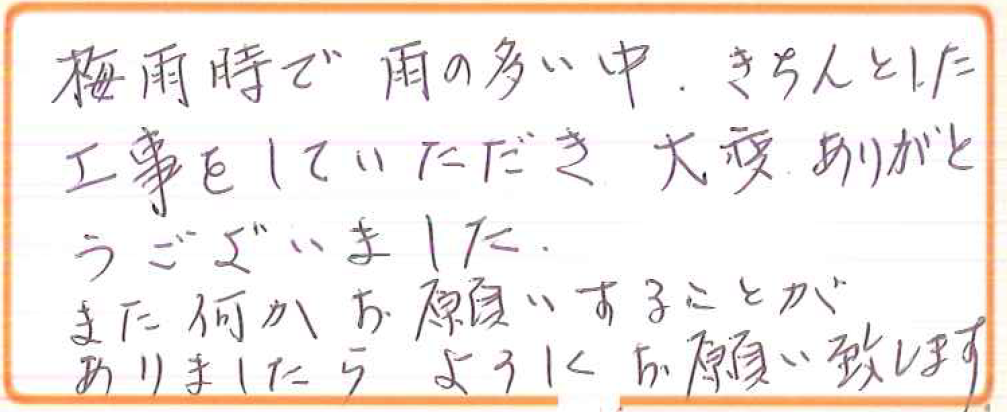 梅雨時で 雨の多い中、きちんとした
工事をしていただき 大変 ありがと
うございました.
また何か お願いすることが
ありましたら よろしく お願い致します